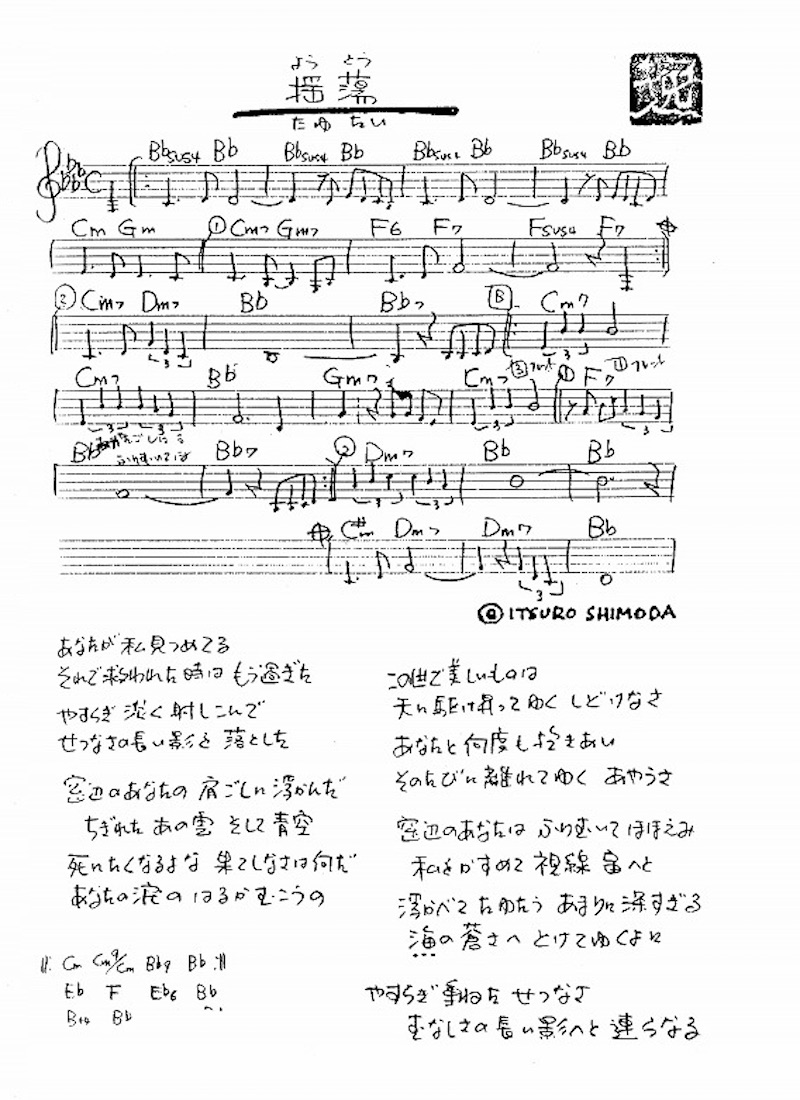 よう とう
揺蕩
たゆ たい
Bbsus4 Bb Bbsus4 Bb Bbsus4 Bb Bbsus4 Bb
C
Cm Gm ① Cm7 Gm7 F6 F7 Fsus4 F7
② Cm7 Dm7 Bb Bb7 B Cm7
3
Cm7 Bb Gm7 Cm7 ③フレット ① F7 ①フレット
3 3 3 3
Bb Bb7 ② Dm7 Bb Bb
3 3
C#m Dm7 Dm7 Bb
3
@ ITSURO SHIMODA
あなたが私見つめてる
それで救われた時は もう過ぎた
やすらぎ 淡く射しこんで
せつなさの長い影を 落とした
窓辺のあなたの 肩ごしに浮かんだ
ちぎれた あの雲 そして青空
死にたくなるよな 果てしなさは何だ
あなたの涙の はるかむこうの
Cm Cm9/Cm Bb9 Bb
Eb F Eb6 Bb
Bb
この世で美しいものは
天に駆け昇ってゆく しどけなさ
あなたと何度も抱きあい
そのたびに離れてゆく あやうさ
窓辺のあなたは ふりむいてほほえみ
私をかすめて視線 宙へと
浮かべて たゆたう あまりに深すぎる
海の蒼さへ とけてゆくよに
やすらぎ重ねた せつなさ
むなしさの長い影へと 連らなる